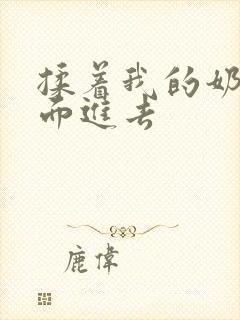 揉着我的奶
而进去
鹿偉